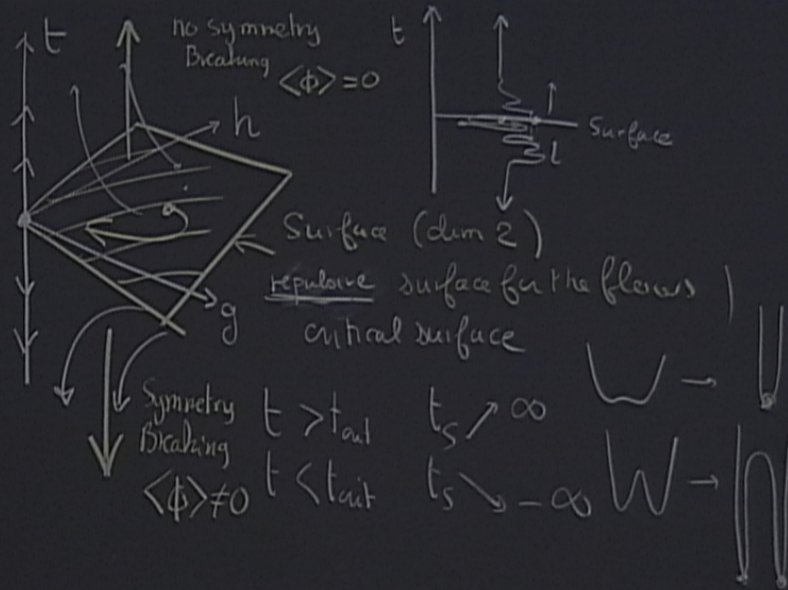 t
no symmetry
Breaking
⟨Φ⟩=0
h
t
Surface
Surface (dim 2)
repulsive surface for the flows
critical surface
g
Symmetry
Breaking
⟨Φ⟩≠0
t > tcrit
ts ↗ ∞
t < tcrit
ts ↘ -∞